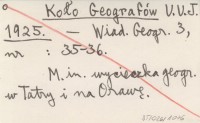 Koło Geografów U.U.J.
1925. — Wiad. Geogr. 3,
nr : 35-36.
M. in. wycieczka geogr.
w Tatry i na Orawę.